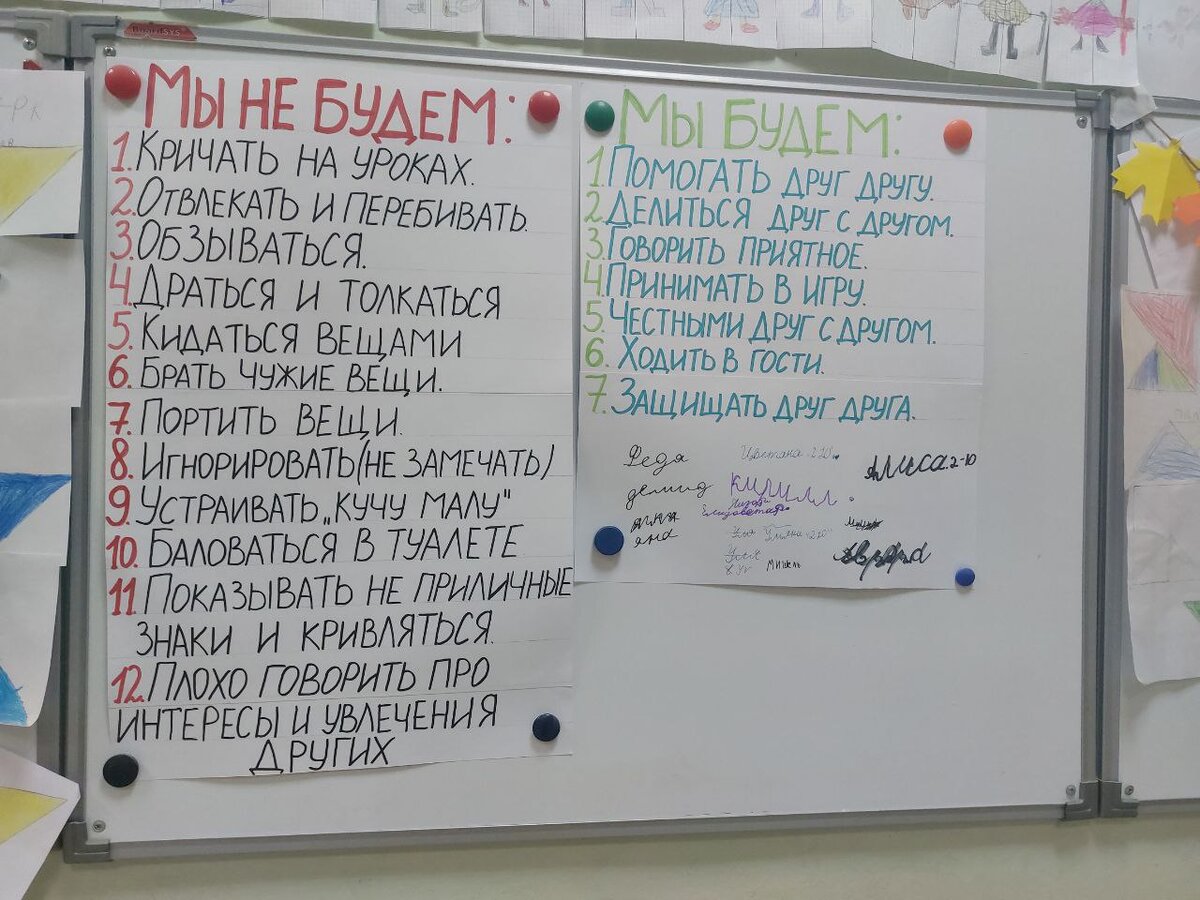 МЫ НЕ БУДЕМ:
1. КРИЧАТЬ НА УРОКАХ.
2. ОТВЛЕКАТЬ И ПЕРЕБИВАТЬ.
3. ОБЗЫВАТЬСЯ.
4. ДРАТЬСЯ И ТОЛКАТЬСЯ
5. КИДАТЬСЯ ВЕЩАМИ
6. БРАТЬ ЧУЖИЕ ВЕЩИ.
7. ПОРТИТЬ ВЕЩИ.
8. ИГНОРИРОВАТЬ (НЕ ЗАМЕЧАТЬ)
9. УСТРАИВАТЬ „КУЧУ МАЛУ"
10. БАЛОВАТЬСЯ В ТУАЛЕТЕ
11. ПОКАЗЫВАТЬ НЕ ПРИЛИЧНЫЕ
ЗНАКИ И КРИВЛЯТЬСЯ.
12. ПЛОХО ГОВОРИТЬ ПРО
ИНТЕРЕСЫ И УВЛЕЧЕНИЯ
ДРУГИХ
МЫ БУДЕМ:
1. ПОМОГАТЬ ДРУГ ДРУГУ.
2. ДЕЛИТЬСЯ ДРУГ С ДРУГОМ.
3. ГОВОРИТЬ ПРИЯТНОЕ.
4. ПРИНИМАТЬ В ИГРУ.
5. ЧЕСТНЫМИ ДРУГ С ДРУГОМ.
6. ХОДИТЬ В ГОСТИ.
7. ЗАЩИЩАТЬ ДРУГ ДРУГА.
Федя
Алиса 2-10
демид
КИРИЛЛ
Елизавета
яна
Мишель